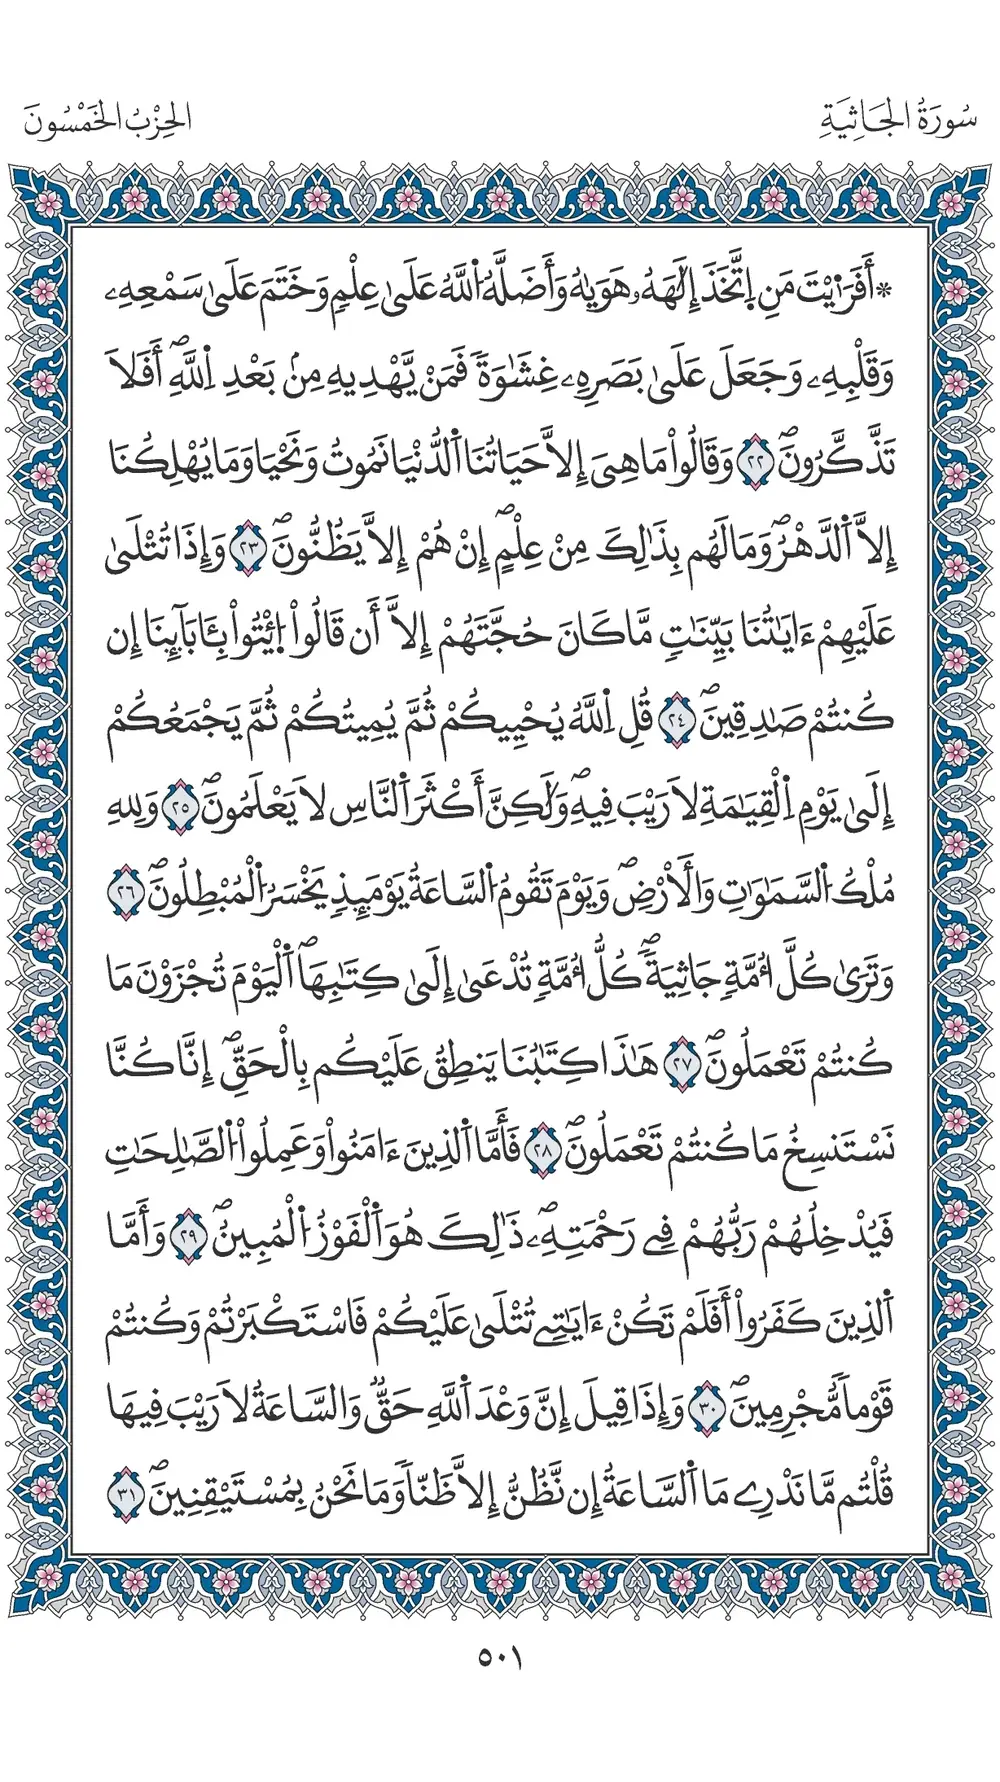 سُورَةُ الجَاثِيَةِ
الحِزْبُ الخَمْسُونَ
* أَفَرَٰيْتَ مَنِ اِتَّخَذَ إِلَٰهَهُۥ هَوَيٰهُ وَأَضَلَّهُ اُ۬للَّهُ عَلَىٰ عِلْمٖ وَخَتَمَ عَلَىٰ سَمْعِهِۦ
وَقَلْبِهِۦ وَجَعَلَ عَلَىٰ بَصَرِهِۦ غِشَٰوَةٗ فَمَنْ يَّهْدِيهِ مِنۢ بَعْدِ اِ۬للَّهِۖ أَفَلَا
تَذَّكَّرُونَۖ ٢٢ وَقَالُواْ مَا هِىَ إِلَّا حَيَاتُنَا اَ۬لدُّنْيَا نَمُوتُ وَنَحْيَا وَمَا يُهْلِكُنَا
إِلَّا اَ۬لدَّهْرُۖ وَمَا لَهُم بِذَٰلِكَ مِنْ عِلْمٍۖ إِنْ هُمْ إِلَّا يَظُنُّونَۖ ٢٣ وَإِذَا تُتْلَىٰ
عَلَيْهِمْ ءَايَٰتُنَا بَيِّنَٰتٖ مَّا كَانَ حُجَّتَهُمْ إِلَّا أَن قَالُواْ اُ۪ئْتُواْ بِـَٔابَآئِنَا إِن
كُنتُمْ صَٰدِقِينَۖ ٢٤ قُلِ اِ۬للَّهُ يُحْيِيكُمْ ثُمَّ يُمِيتُكُمْ ثُمَّ يَجْمَعُكُمْ
إِلَىٰ يَوْمِ اِ۬لْقِيَٰمَةِ لَا رَيْبَ فِيهِۖ وَلَٰكِنَّ أَكْثَرَ اَ۬لنَّاسِ لَا يَعْلَمُونَۖ ٢٥ وَلِلهِ
مُلْكُ اُ۬لسَّمَٰوَٰتِ وَالْأَرْضِۖ وَيَوْمَ تَقُومُ اُ۬لسَّاعَةُ يَوْمَئِذٖ يَخْسَرُ اُ۬لْمُبْطِلُونَۖ ٢٦
وَتَرَىٰ كُلَّ أُمَّةٖ جَاثِيَةٗۖ كُلُّ أُمَّةٖ تُدْعَىٰ إِلَىٰ كِتَٰبِهَاۖ اَ۬لْيَوْمَ تُجْزَوْنَ مَا
كُنتُمْ تَعْمَلُونَۖ ٢٧ هَٰذَا كِتَٰبُنَا يَنطِقُ عَلَيْكُم بِالْحَقِّۖ إِنَّا كُنَّا
نَسْتَنسِخُ مَا كُنتُمْ تَعْمَلُونَۖ ٢٨ فَأَمَّا اَ۬لذِينَ ءَامَنُواْ وَعَمِلُواْ اُ۬لصَّٰلِحَٰتِ
فَيُدْخِلُهُمْ رَبُّهُمْ فِے رَحْمَتِهِۦۖ ذَٰلِكَ هُوَ اَ۬لْفَوْزُ اُ۬لْمُبِينُۖ ٢٩ وَأَمَّا
اَ۬لذِينَ كَفَرُواْ أَفَلَمْ تَكُنْ ءَايَٰتِے تُتْلَىٰ عَلَيْكُمْ فَاسْتَكْبَرْتُمْ وَكُنتُمْ
قَوْماٗ مُّجْرِمِينَۖ ٣٠ وَإِذَا قِيلَ إِنَّ وَعْدَ اَ۬للَّهِ حَقّٞ وَالسَّاعَةُ لَا رَيْبَ فِيهَا
قُلْتُم مَّا نَدْرِے مَا اَ۬لسَّاعَةُ إِن نَّظُنُّ إِلَّا ظَنّاٗ وَمَا نَحْنُ بِمُسْتَيْقِنِينَۖ ٣١
٥٠١